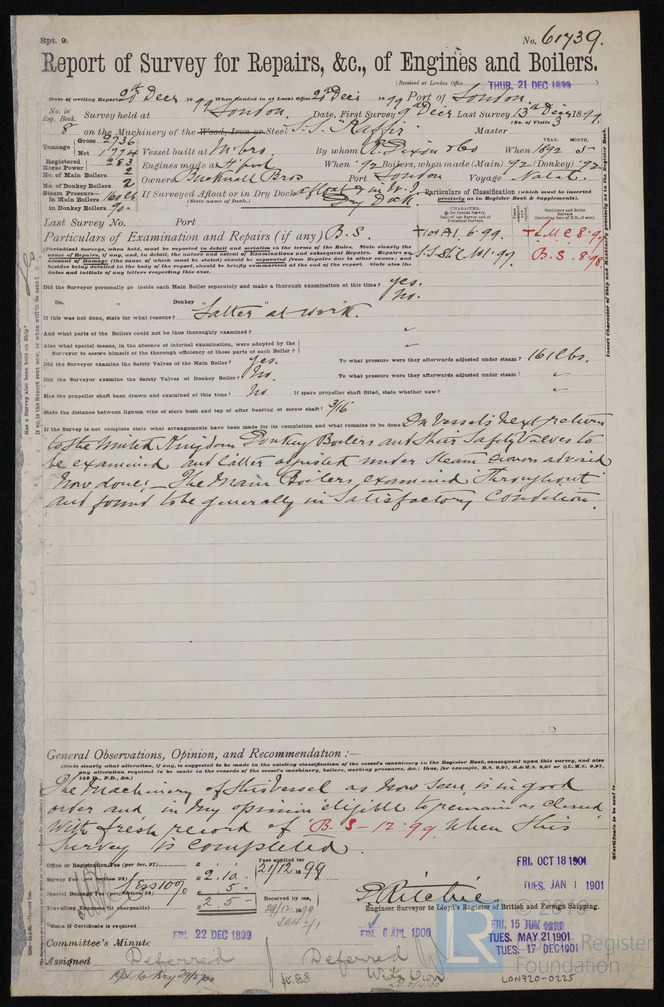 Rpt. 9.
No. 61739.
Report of Survey for Repairs, &c., of Engines and Boilers.
(Received at London Office THUR. 21 DEC 1899
Date of writing Report 20th Decr 1899 When handed in at Local Office 20 Decr 1899 Port of London
No. in Reg. Book. Survey held at London Date, First Survey 9 Decr Last Survey 13th Decr 1899
(No. of Visits 3
8 on the Machinery of the Wood, Iron or Steel S.S. Kaffir Master
Tonnage Gross 2736 Net 1774 Vessel built at M'bro By whom R. Dixon & Co When 1892 5
YEAR. MONTH.
Registered Horse Power 283 Engines made at H'pool When '92 Boilers, when made (Main) 92 (Donkey) 92
No. of Main Boilers 2 Owners Bucknall Bros Port London Voyage Natal
No. of Donkey Boilers 2
Steam Pressure in Main Boilers 160 lb If Surveyed Afloat or in Dry Dock afloat & in W.I. Dry Dock
(State name of Dock.)
in Donkey Boilers 90
Particulars of Classification (which must be inserted precisely as in Register Book & Supplements).
Last Survey No. Port
Particulars of Examination and Repairs (if any) B.S.
+LMC 8.9
B.S. 8.98
Did the Surveyor personally go inside each Main Boiler separately and make a thorough examination at this time? yes.
Do. " Donkey " " No.
If this was not done, state for what reasons? Latter at work.
And what parts of the Boilers could not be thus thoroughly examined?
Also what special means, in the absence of internal examination, were adopted by the Surveyor to assure himself of the thorough efficiency of those parts of each Boiler?
Did the Surveyor examine the Safety Valves of the Main Boiler? Yes. To what pressure were they afterwards adjusted under steam? 161 lbs.
Did the Surveyor examine the Safety Valves of Donkey Boiler? No. To what pressure were they afterwards adjusted under steam?
Has the propeller shaft been drawn and examined at this time? No If spare propeller shaft fitted, state whether new?
State the distance between lignum vitæ of stern bush and top of after bearing of screw shaft? 3/16
If the Survey is not complete state what arrangements have been made for its completion and what remains to be done On Vessel's next return
to the United Kingdom Donkey Boilers and their Safety Valves to
be examined and latter adjusted under Steam Owners advised
Now done:— The Main Boilers examined Throughout
and found to be generally in Satisfactory Condition.
General Observations, Opinion, and Recommendation:—
(State clearly what alteration, if any, is suggested to be made in the existing classification of the vessel's machinery in the Register Book, consequent upon this survey, and also
any alteration required to be made in the records of the vessel's machinery, boilers, working pressures, &c.: thus, for example, B.S. 9,97, B.&M.S. 9,97 or L.M.C. 9,97,
The Machinery of this Vessel as now seen is in good
order and in my opinion eligible to remain as classed
with fresh record of B.S-12.99 when this
Survey is completed.
Office or Registration Fee (per Sec. 27)
Survey Fee (per Section 28) £ 2.10.
Less 10% 5.
£ 2. 5 -
Special Damage Fee (per Section 28)
Travelling Expenses (if chargeable)
Fees applied for 21/12 1899
Received by me,
29/12 1899
P Ritchie
Engineer Surveyor to Lloyd's Register of British and Foreign Shipping.
State if Certificate is required
FRI. OCT 18 1901
TUES. JAN 1 1901
FRI. 15 JUN 1900
TUES. MAY 21 1901
TUES. 17 DEC 1901
Committee's Minute FRI. 22 DEC 1899 FRI. 6 APL 1900
Assigned Deferred Deferred
Write Own
LR
© 2019
Lloyd's Register
Foundation
LON720-0225